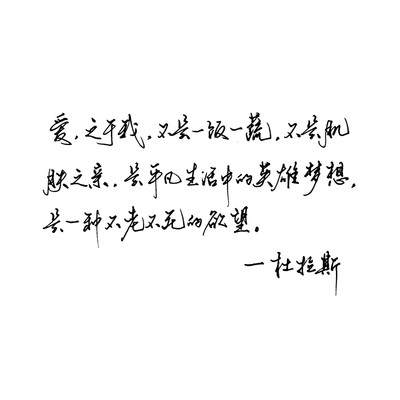 爱，之于我，不是一饭一蔬，不是肌
肤之亲，是平凡生活中的英雄梦想，
是一种不老不死的欲望。
一杜拉斯